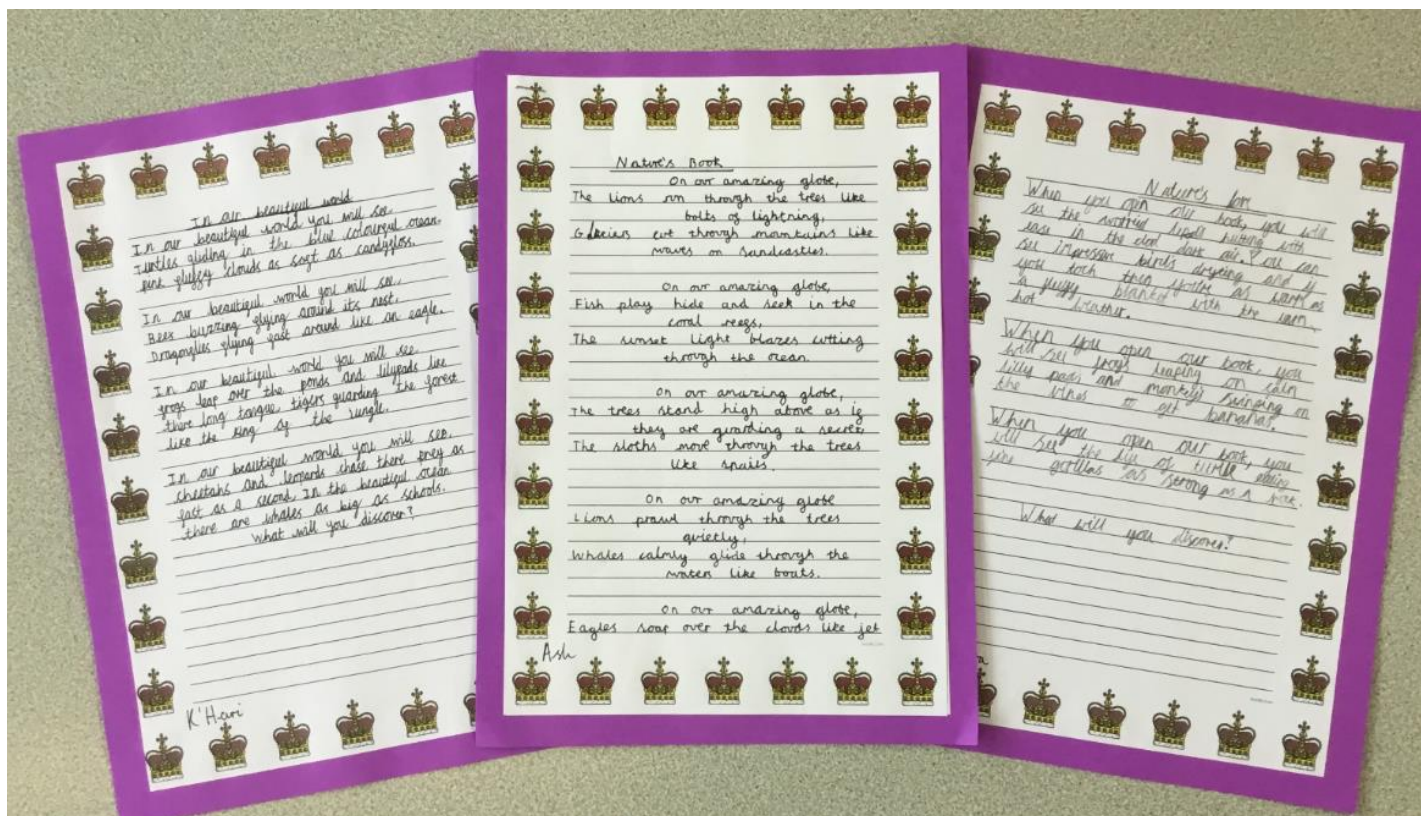 In our beautiful world
In our beautiful world you will see.
Turtles gliding in the blue colourful ocean.
pink fluffy clouds as soft as candyfloss.
In our beautiful world you will see.
Bees buzzing flying around its nest.
Dragonflies flying fast around like an eagle.
In our beautiful world you will see
frogs leap over the ponds and lilypads like
there long tongue, tigers guarding the forest
like the king of the jungle.
In our beautiful world you will see,
cheetahs and leopards chase there prey as
fast as a second. In the beautiful ocean
there are whales as big as schools.
What will you discover?
K'Hari
Nature's Book
On our amazing globe,
The Lions run through the trees like
bolts of lightning,
Glaciers cut through mountains like
waves on sandcastles.
On our amazing globe,
Fish play hide and seek in the
coral reefs,
The sunset light blazes cutting
through the ocean.
On our amazing globe,
The trees stand high above as if
they are guarding a secret,
The sloths move through the trees
like snails.
On our amazing globe
Lions prawl through the trees
quietly,
Whales calmly glide through the
waters like boats.
On our amazing globe,
Eagles soar over the clouds like jet
Ash
Nature's
When you open our book, you will
see the worried with
in the dark air. You can
see impressive birds and if
you toch then you're as warm as
a fluffy blanket with the
hot
When you open our book, you
will see frogs leaping on
lilly pads and monkeys swinging on
the vines to get bananas.
When you open our book, you
will see the of
gorillas as strong as a
What will you discover?